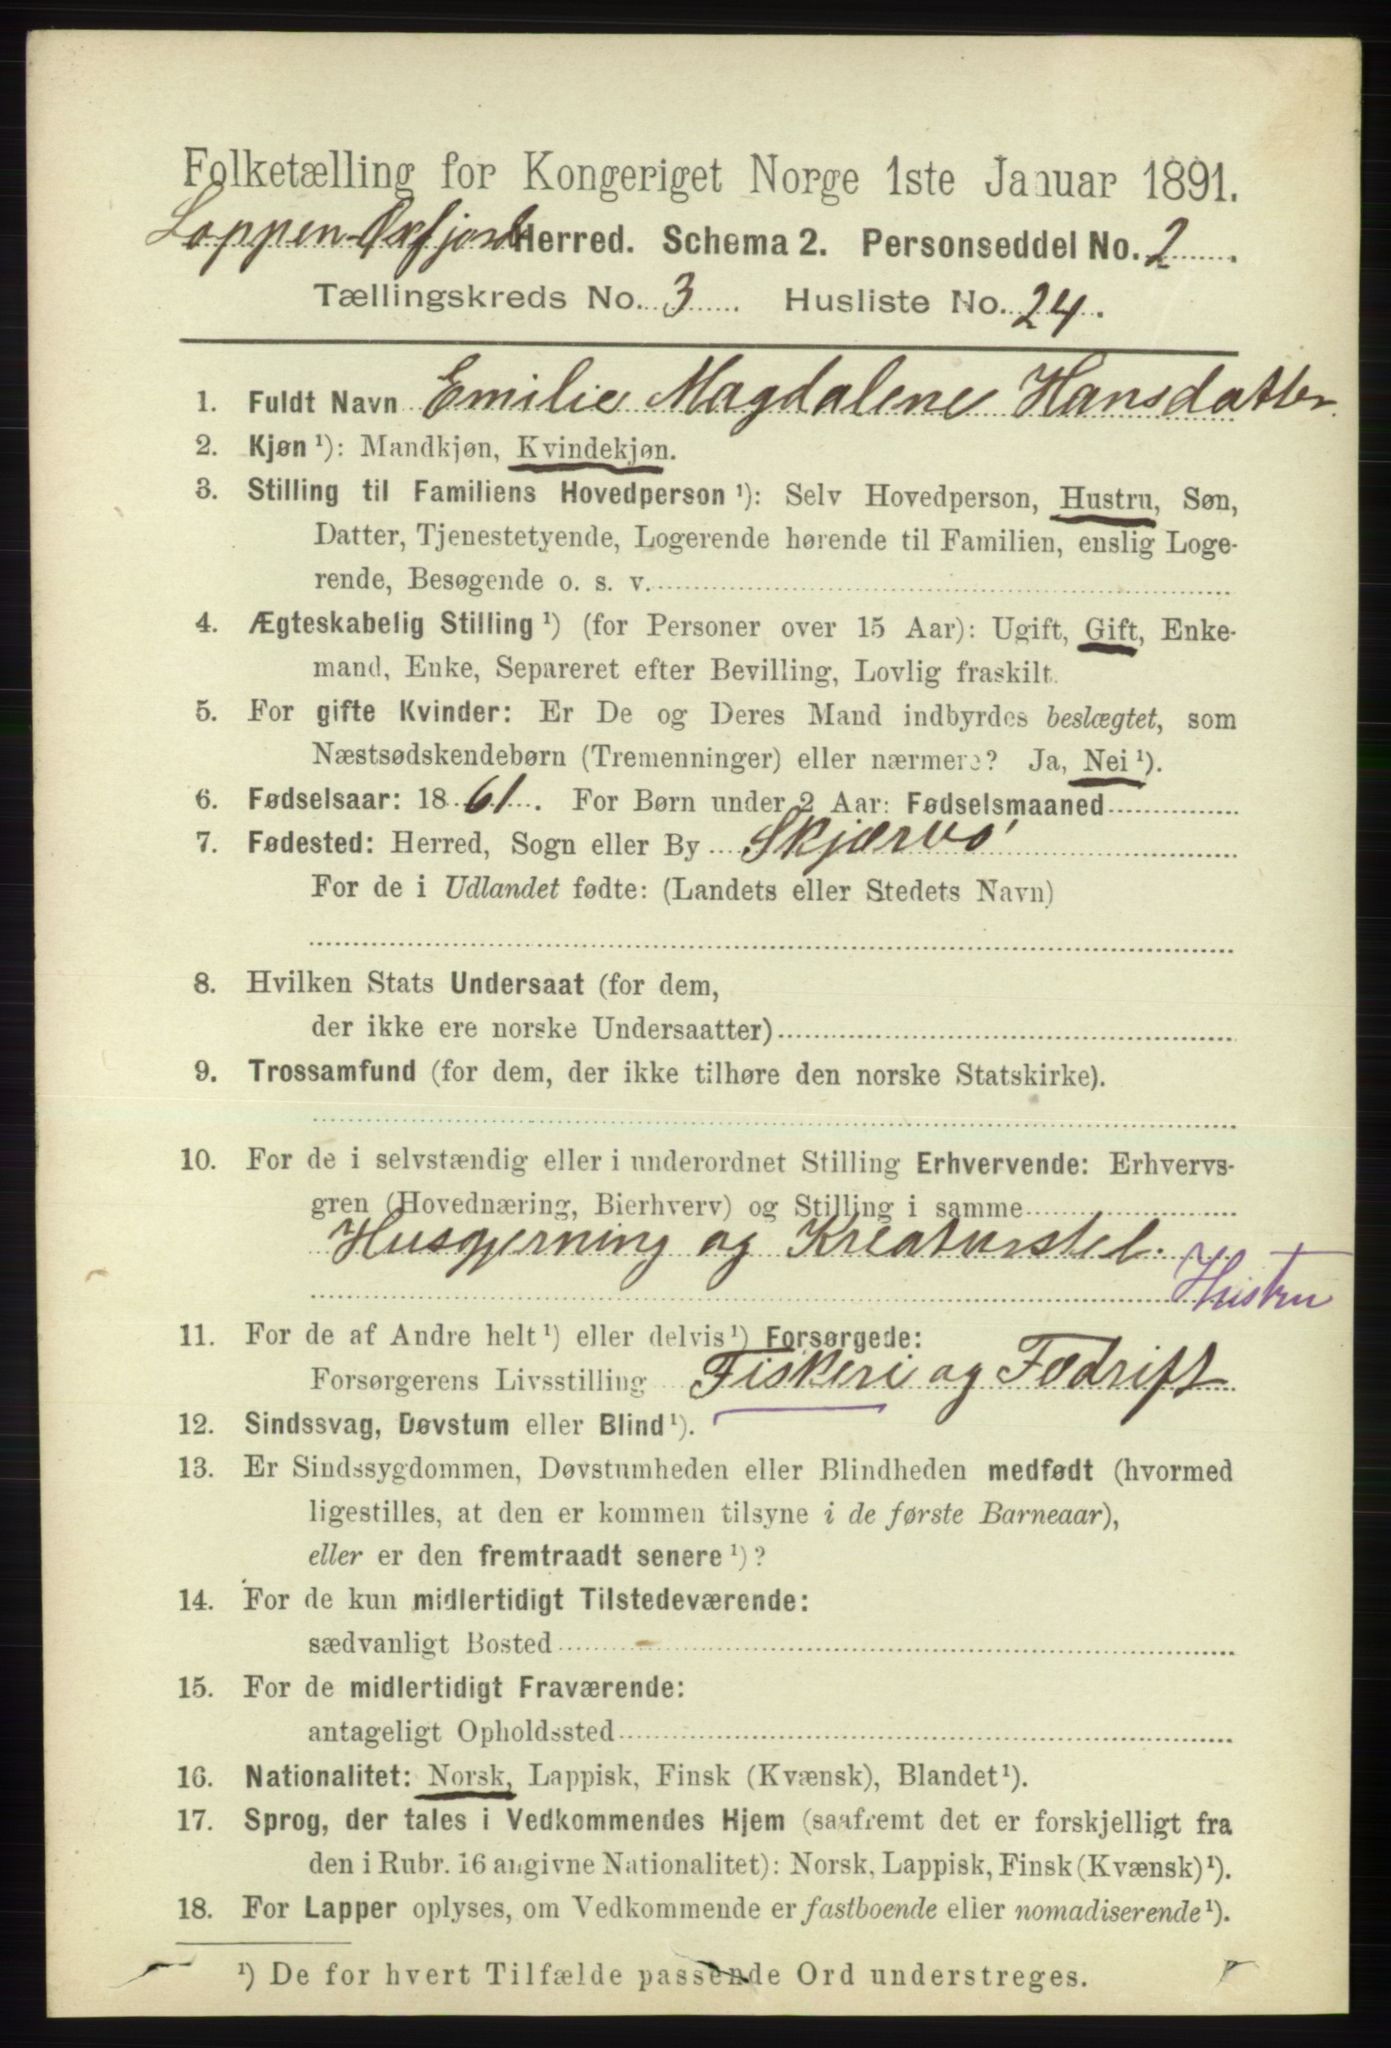 Folketælling for Kongeriget Norge 1ste Januar 1891.
Loppen-Øxfjord Herred. Schema 2. Personseddel No. 2
Tællingskreds No. 3 Husliste No. 24.
1. Fuldt Navn Emilie Magdalene Hansdatter
2. Kjøn ¹): Mandkjøn, Kvindekjøn.
3. Stilling til Familiens Hovedperson ¹): Selv Hovedperson, Hustru, Søn,
Datter, Tjenestetyende, Logerende hørende til Familien, enslig Loge-
rende, Besøgende o. s. v.
4. Ægteskabelig Stilling ¹) (for Personer over 15 Aar): Ugift, Gift, Enke-
mand, Enke, Separeret efter Bevilling, Lovlig fraskilt.
5. For gifte Kvinder: Er De og Deres Mand indbyrdes beslægtet, som
Næstsødskendebørn (Tremenninger) eller nærmere? Ja, Nei ¹).
6. Fødselsaar: 1861. For Børn under 2 Aar: Fødselsmaaned
7. Fødested: Herred, Sogn eller By Skjærvø
For de i Udlandet fødte: (Landets eller Stedets Navn)
8. Hvilken Stats Undersaat (for dem,
der ikke ere norske Undersaatter)
9. Trossamfund (for dem, der ikke tilhøre den norske Statskirke).
10. For de i selvstændig eller i underordnet Stilling Erhvervende: Erhvervs-
gren (Hovednæring, Bierhverv) og Stilling i samme
Husgjerning og Kreaturstel.
Hustru
11. For de af Andre helt ¹) eller delvis ¹) Forsørgede:
Forsørgerens Livsstilling Fiskeri og Fædrift
12. Sindssvag, Døvstum eller Blind ¹).
13. Er Sindssygdommen, Døvstumheden eller Blindheden medfødt (hvormed
ligestilles, at den er kommen tilsyne i de første Barneaar),
eller er den fremtraadt senere ¹)?
14. For de kun midlertidigt Tilstedeværende:
sædvanligt Bosted
15. For de midlertidigt Fraværende:
antageligt Opholdssted
16. Nationalitet: Norsk, Lappisk, Finsk (Kvænsk), Blandet ¹).
17. Sprog, der tales i Vedkommendes Hjem (saafremt det er forskjelligt fra
den i Rubr. 16 angivne Nationalitet): Norsk, Lappisk, Finsk (Kvænsk) ¹).
18. For Lapper oplyses, om Vedkommende er fastboende eller nomadiserende ¹).
¹) De for hvert Tilfælde passende Ord understreges.